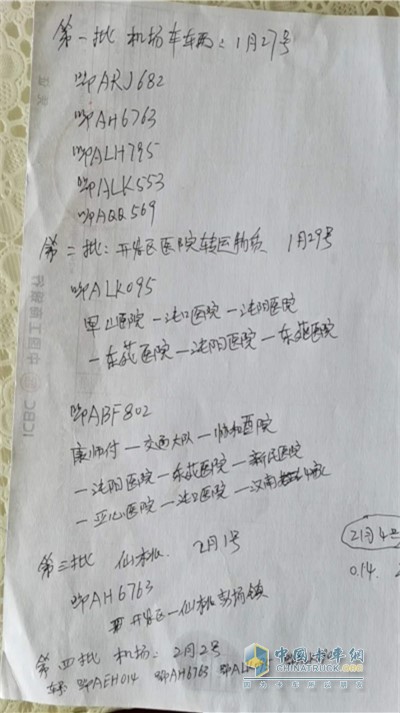 第一批 机场车车辆：1月27号
鄂ARJ682
鄂AH6763
鄂ALH795
鄂ALK553
鄂AQQ569
第二批：开发区医院转运物资 1月29号
鄂ALK095
医院—沌口医院—沌阳医院
—东荻医院—沌阳医院—东荻医院
鄂ABF802
康师付—交通大队—协和医院
—沌阳医院—东荻医院—新民医院
—亚心医院—沌口医院—汉南
第三批 仙桃 2月1号
鄂AH6763
开发区—仙桃 场镇
2月4号
014.
第四批 机场：2月2号
鄂AEH014 鄂AH6763 鄂AL
中国工商银行
ICBC
中国卡车网
CHINATRUCK.ORG